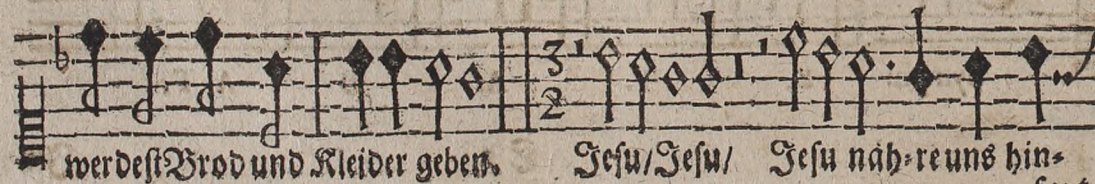 3
2
werdest Brod und Kleider geben. Jesu/Jesu/ Jesu näh=re uns hin=